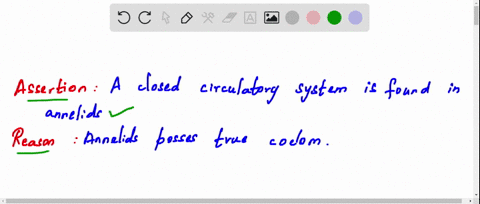 Assertion : A closed circulatory system is found in
annelids
Reason : Annelids posses true coelom.